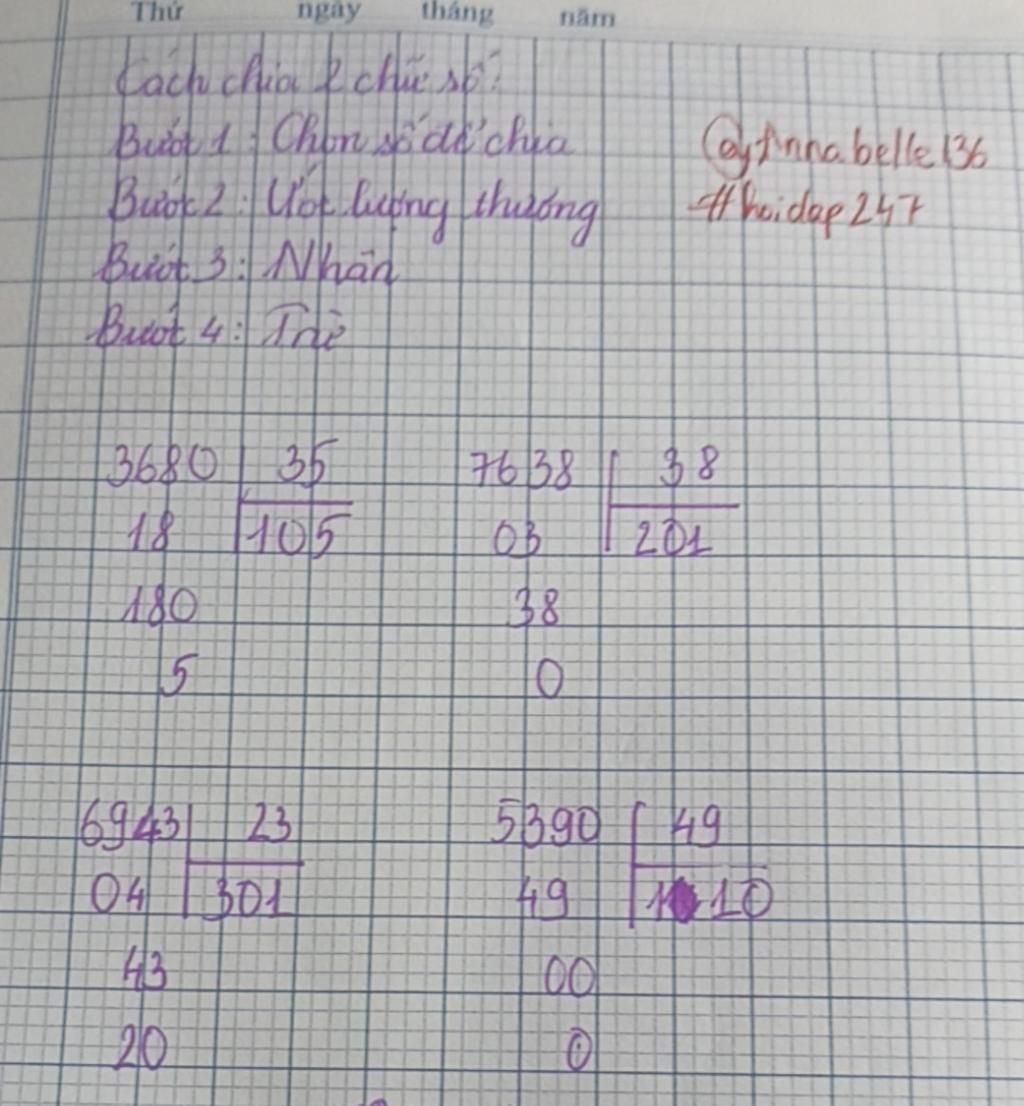 Thứ ngày tháng năm
Cách chia 2 chữ số:
Bước 1: Chọn số để chia @yAnnabelle136
Bước 2: Ước lượng thương #hoidap247
Bước 3: Nhân
Bước 4: Trừ
3680 35 7638 38
18 105 03 201
180 38
5 0
6943 23 5390 49
04 301 49 110
43 00
20 0